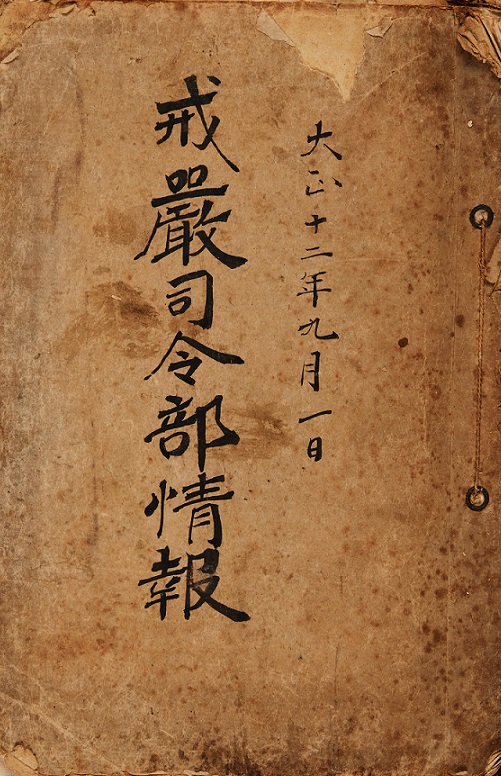 大正十二年九月一日
戒嚴司令部情報